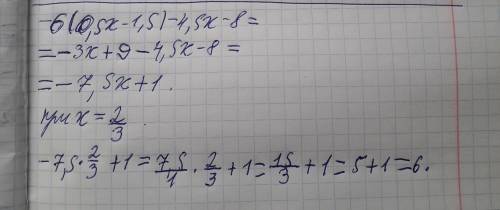 -6(0,5x-1,5)-4,5x-8=
=-3x+9-4,5x-8=
=-7,5x+1.
при x=2/3.
-7,5·2/3+1=75/4·2/3+1=15/3+1=5+1=6.